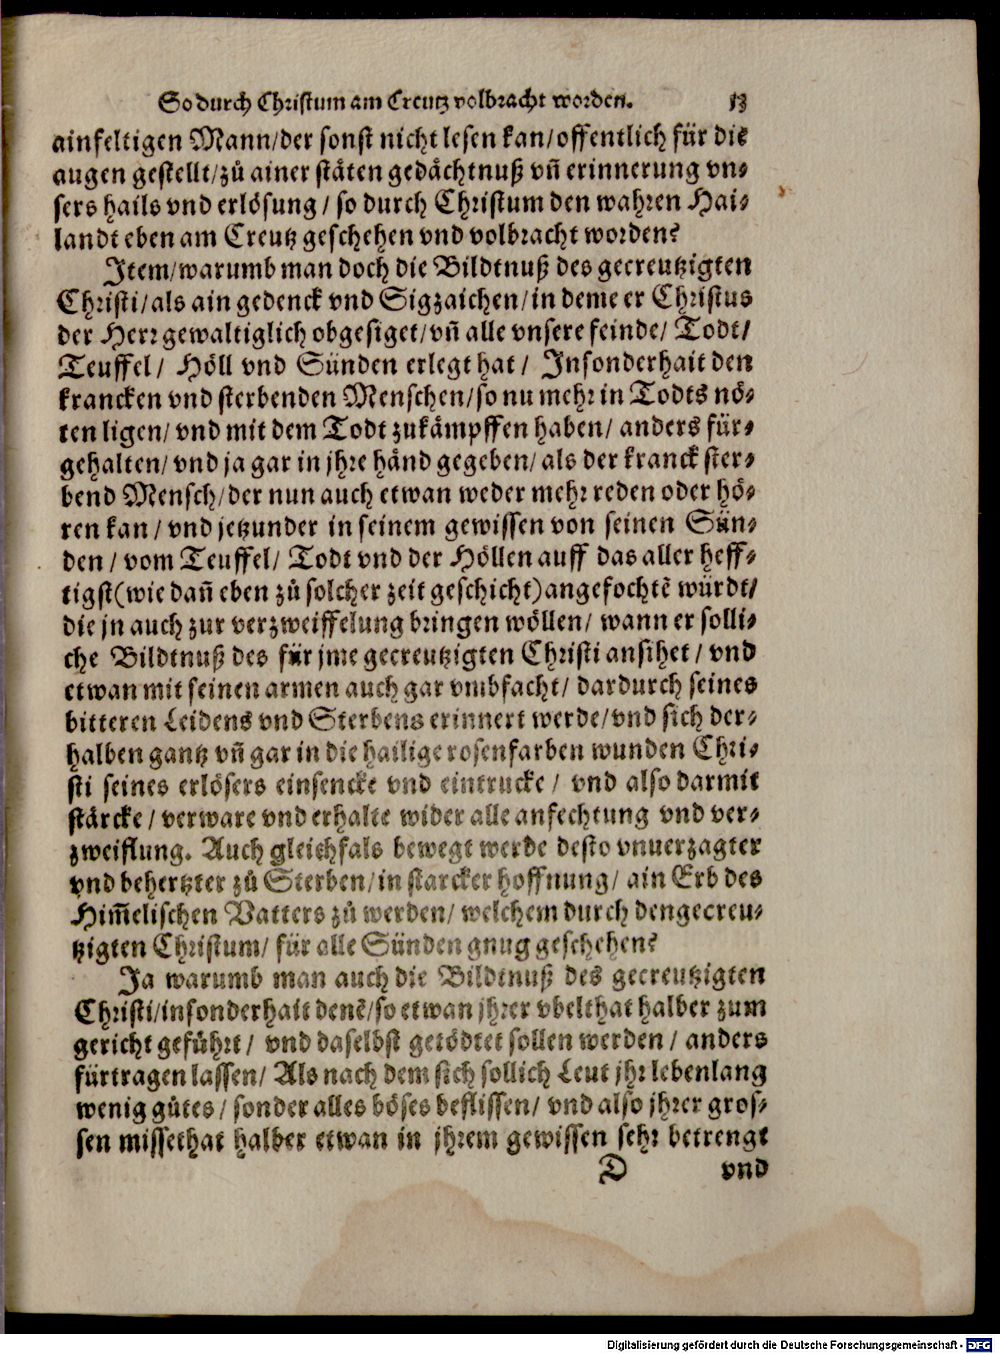 So durch Christum am Creutz volbracht worden. 13
ainfeltigen Mann/der sonst nicht lesen kan/offentlich für die
augen gestellt/zů ainer stäten gedächtnuß vñ erinnerung vn-
sers hails vnd erlösung/ so durch Christum den wahren Hai-
landt eben am Creutz geschehen vnd volbracht worden?
Item/warumb man doch die Bildtnuß des gecreutzigten
Christi/als ain gedenck vnd Sigzaichen/in deme er Christus
der Herr gewaltiglich obgesiget/vñ alle vnsere feinde/ Todt/
Teuffel/ Höll vnd Sünden erlegt hat/ Insonderhait den
krancken vnd sterbenden Menschen/so nu mehr in Todts nö-
ten ligen/ vnd mit dem Todt zukämpffen haben/ anders für-
gehalten/ vnd ja gar in jhre händ gegeben/ als der kranck ster-
bend Mensch/der nun auch etwan weder mehr reden oder hö-
ren kan/ vnd jetzunder in seinem gewissen von seinen Sün-
den/ vom Teuffel/ Todt vnd der Höllen auff das aller heff-
tigst(wie dañ eben zů solcher zeit geschicht)angefochtē würdt/
die jn auch zur verzweiffelung bringen wöllen/ wann er solli-
che Bildtnuß des für jme gecreutzigten Christi ansihet/ vnd
etwan mit seinen armen auch gar vmbfacht/ dardurch seines
bitteren Leidens vnd Sterbens erinnert werde/vnd sich der-
halben gantz vñ gar in die hailige rosenfarben wunden Chri-
sti seines erlösers einsencke vnd eintrucke/ vnd also darmit
stärcke/ verware vnd erhalte wider alle anfechtung vnd ver-
zweiflung. Auch gleichfals bewegt werde desto vnuerzagter
vnd behertzter zů Sterben/in starcker hoffnung/ ain Erb des
Him̃elischen Vatters zů werden/ welchem durch dengecreu-
tzigten Christum/ für alle Sünden gnug geschehen?
Ja warumb man auch die Bildtnuß des gecreutzigten
Christi/insonderhait denē/so etwan jhrer vbelthat halber zum
gericht geführt/ vnd daselbst getödtet sollen werden/ anders
fürtragen lassen/ Als nach dem sich sollich Leut jhr lebenlang
wenig gůtes/ sonder alles böses beflissen/ vnd also jhrer gros-
sen missethat halber etwan in jhrem gewissen sehr betrengt
D vnd
Digitalisierung gefördert durch die Deutsche Forschungsgemeinschaft - DFG